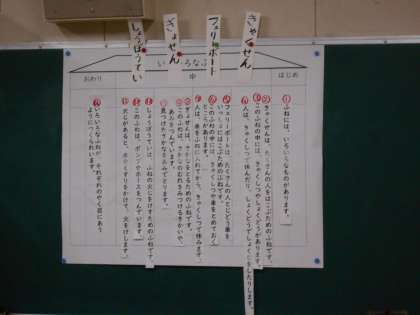 きゃくせん
フェリーボート
ぎょせん
しょうぼうてい
いろいろなふ
はじめ
中
おわり
ふねには、いろいろなものがあります。
きゃくせんは、たくさんの人をはこぶためのふねです。
このふねの中には、きゃくしつやしょくどうがあります。
人は、きゃくしつで休んだり、しょくどうでしょくじをしたりします。
フェリーボートは、たくさんの人とじどう車を
いっしょにはこぶためのふねです。
このふねの中には、きゃくしつや車をとめておく
ところがあります。
人は、車をふねに入れてから、きゃくしつで休みます。
ぎょせんは、さかなをとるためのふねです。
このふねは、さかなのむれを見つけるきかいや、
あみをつんでいます。
見つけたさかなをあみでとります。
しょうぼうていは、ふねの火じをけすためのふねです。
このふねは、ポンプやホースをつんでいます。
火じがあると、水やくすりをかけて、火をけします。
いろいろなふねが、それぞれのやく目にあう
ようにつくられています。